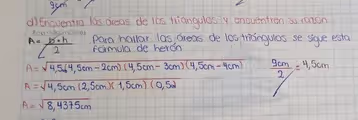 9cm
d) Encuentra las áreas de los triángulos y encuentran su razón
A = b·h / 2 Para hallar las áreas de los triángulos se sigue esta
fórmula de herón
A = √4,5(4,5cm-2cm)(4,5cm-3cm)(4,5cm-4cm) 9cm / 2 = 4,5cm
A = √4,5cm(2,5cm)(1,5cm)(0,5)
A = √8,4375cm